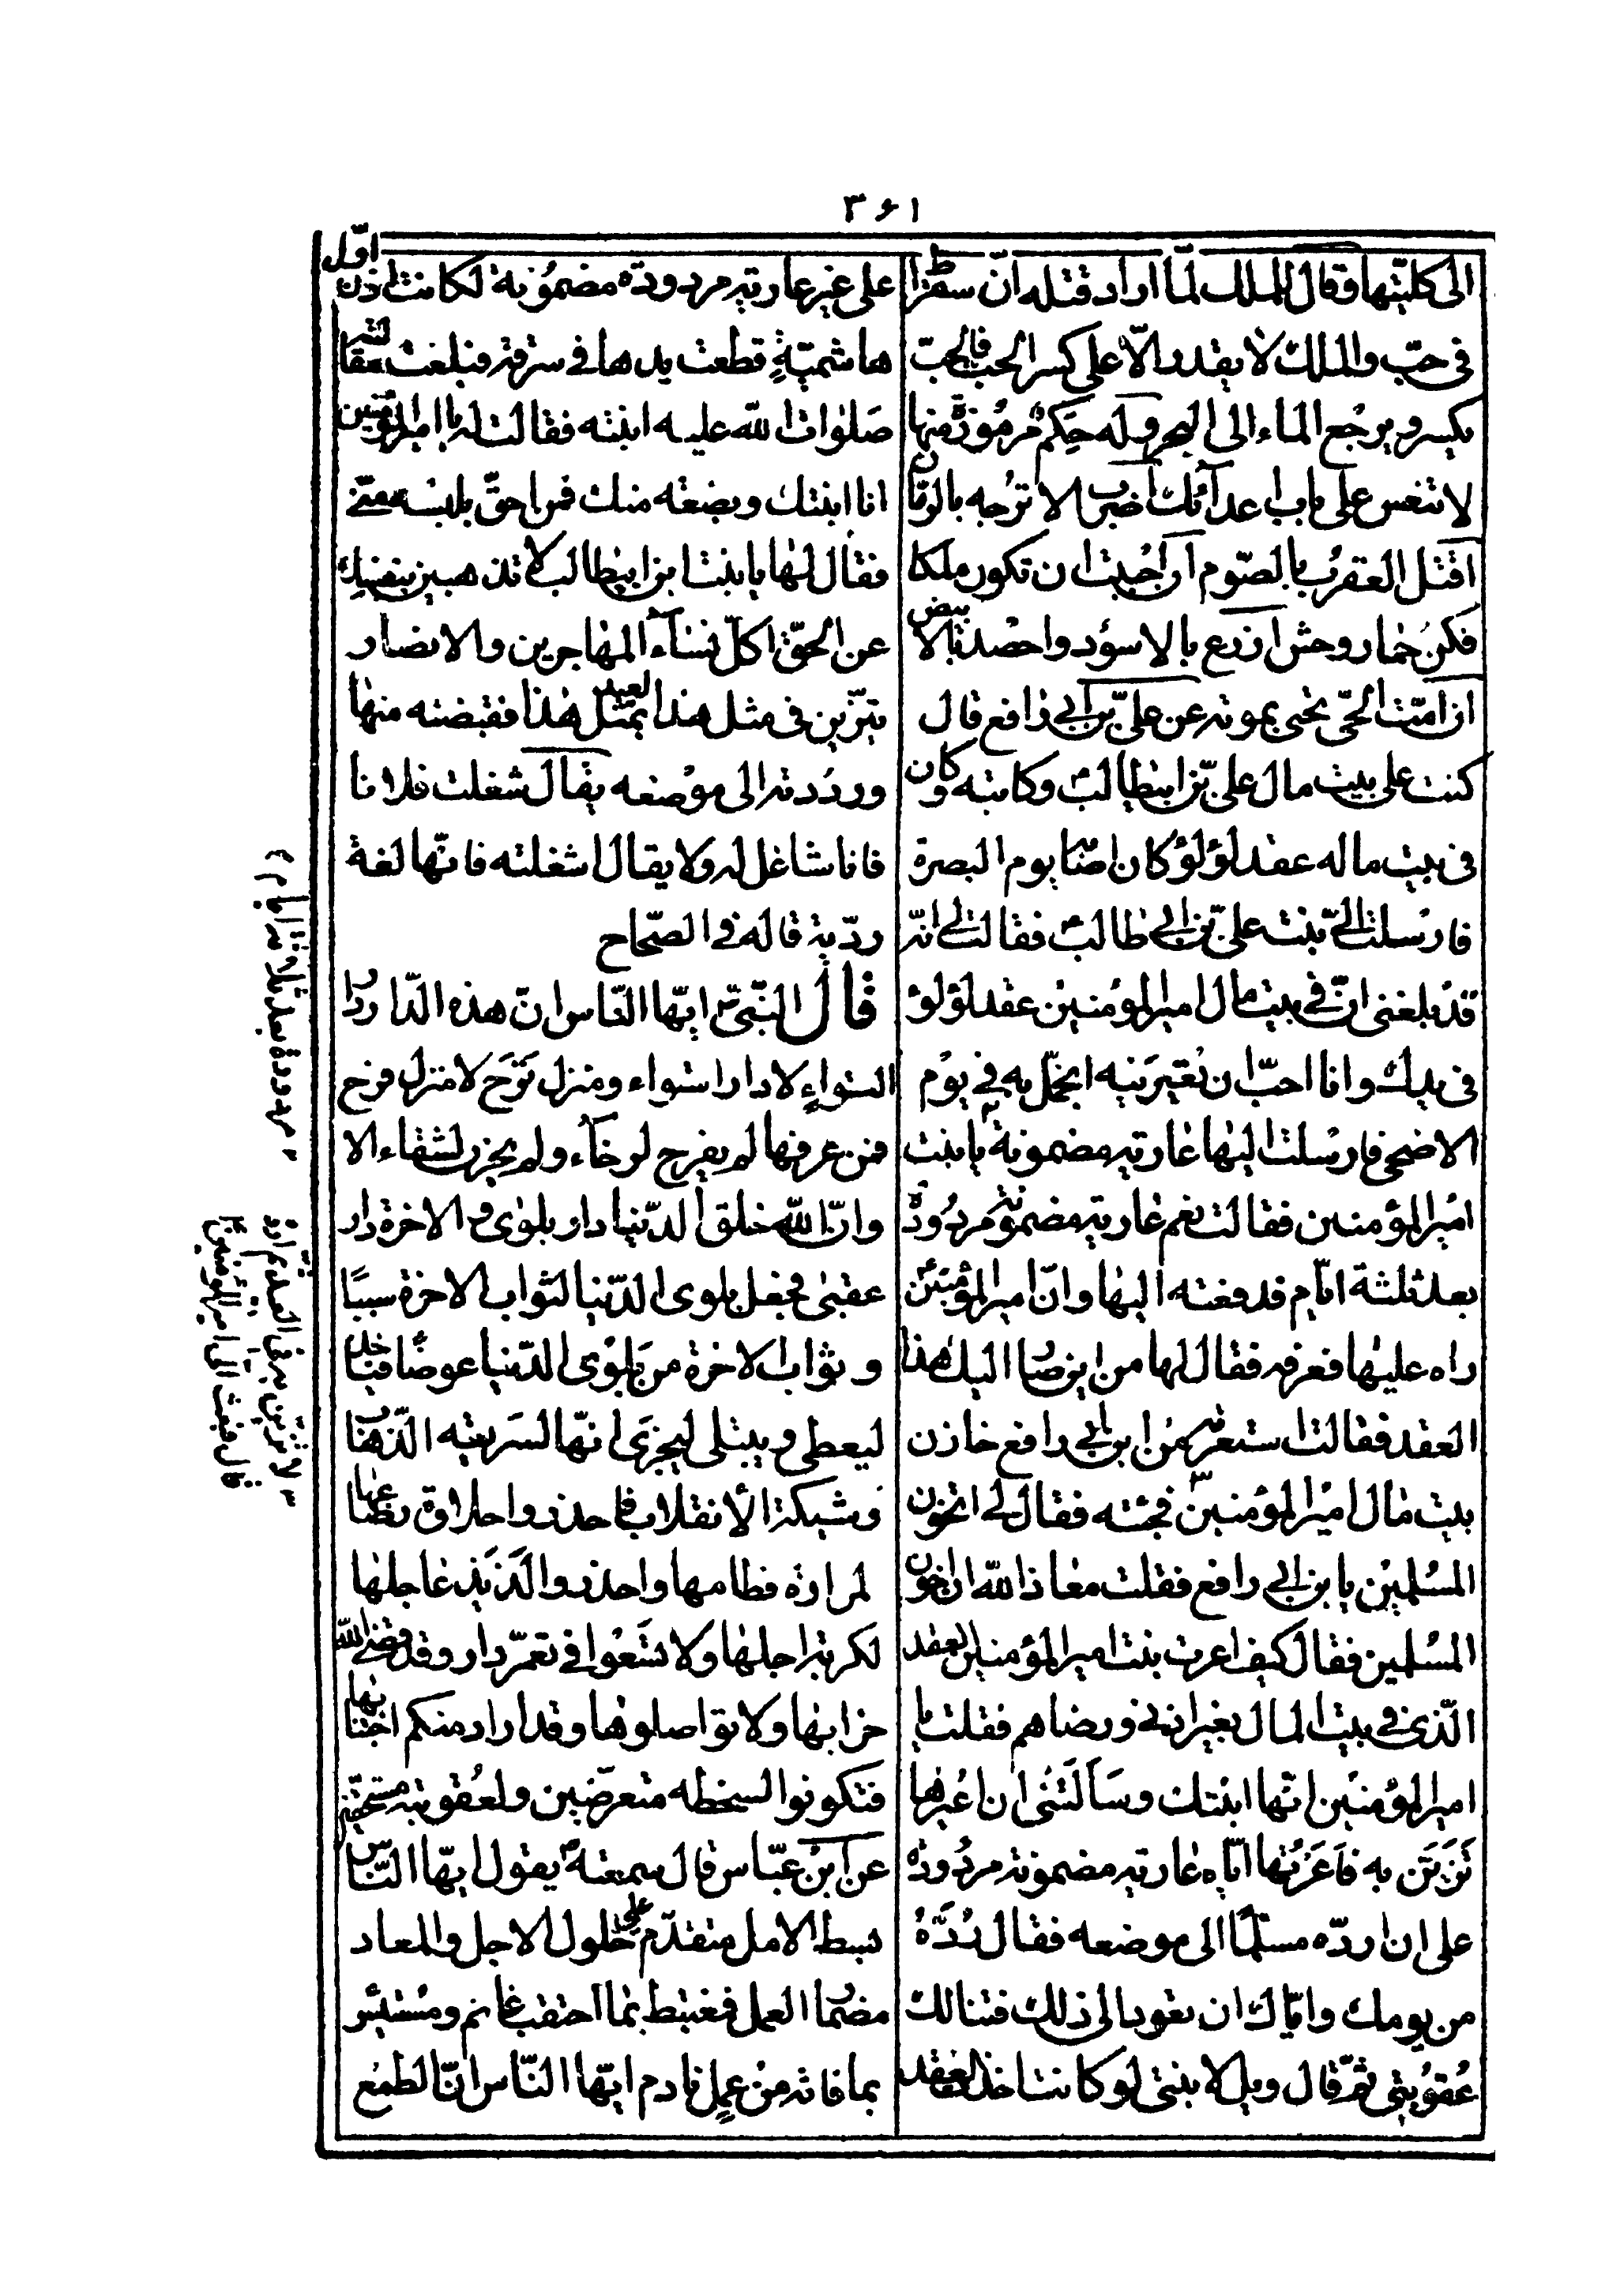 ۳۶۱
الى كليّتها وقال الملك لمّا اراد قتله انّ سقراط
فى حبّ والملك لا يقدر الّا على كسر الحب فالحبّ
يكسر ويرجع الماء الى البحر وله حِكم مرموزة منها
لا تنعس على باب اعدائك اضرب الاترجه بالرمّان
اقتل العقرب بالصّوم ان اجبت ان تكون ملكا
فكن حمار وحش ازرع بالاسود واحصد بالابيض
ان امّت الحىّ تحى بموته عن علىّ بن ابى رافع قال
كنت على بيت مال علىّ بن ابيطالب وكاتبه وكان
فى بيت ماله عقد لؤلؤ كان اصابه يوم البصرة
فارسلت الىّ بنت علىّ بن ابى طالب فقالت لى انّه
قد بلغنى انّ فى بيت مال امير المؤمنين عقد لؤلؤ
فى يدك وانا احبّ ان تعيرَنيه اتجمّل به فى يوم
الاضحى فارسلت اليها عارية مضمونة يا بنت
امير المؤمنين فقالت نعم عارية مضمونة مردودة
بعد ثلثة ايّام فدفعته اليها وانّ امير المؤمنين
راه عليها فعرفه فقال لها من اين صار اليك هذا
العقد فقالت استعرته من ابن ابى رافع خازن
بيت مال امير المؤمنين فجئته فقال لى اتخون
المسلمين يا بن ابى رافع فقلت معاذ الله ان اخون
المسلمين فقال كيف اعرت بنت امير المؤمنين العقد
الّذى فى بيت المال بغير اذنى ورضاهم فقلت يا
امير المؤمنين انّها ابنتك وسَألَتنى ان اعُيرها
تَتَزَيّن به فاَعَرْتُها ايّاه عارية مضمونة مردودة
على ان اردّه مسلّمًا الى موضعه فقال رُدَّهُ
من يومك وايّاك ان تعود الى ذلك فتنالك
عُقوُبتى ثمّ قال ويل لابنتى لو كانت اخذت العقد
على غير عارية مردودة مضموُنة لكانت اذن اوّل
هاشميّةٍ قطعت يدها فى سرقة فبلغت مقالته
صَلوات الله عليه ابنته فقالت له يا امير المؤمنين
انا ابنتك وبضعة منك فمن احقّ بلبسه منّى
فقال لها يا بنت ابن ابيطالب لا تذهبين بنفسك
عن الحقّ اكلّ نسآء المهاجرين والانصار
يتزّين فى مثل هذا العيد بمثل هذا فقبضته منها
ورددته الى موضعه يقال شغلت فلانا
فانا شاغل له ولا يقال اشغلته فانّها لغة
رديّة قاله فى الصّحاح
قال النّبىّ ايّها النّاس انّ هذه الدّار دار
التواءٍ لا دار استواء ومنزل تَرَح لا منزل فرح
فمن عرفها لم يفرح لرخآء ولم يحزن لشقاء الا
وانّ الله خلق الدّنيا دار بلوى والاخرة دار
عقبى فجعل بلوى الدّنيا لثواب الاخرة سببًا
وثواب الاخرة من بلوى الدّنيا عوضًا فياخذ
ليعطى ويبتلى ليجزى انّها لسريعة الذّهاب
وشيكة الأنقلاب فاحذروا حلاوة رضاعها
لمرارة فطامها واحذروا لَذيذ عاجلها
لكريه اجلها ولا تسَعوا فى تعمّر دار وقد قضى الله
خرابها ولا تواصلوها وقد اراد منكم اجتنابها
فتكونوا لسخطه متعرّضين ولعُقوبته مستحقّين
عن ابن عبّاس قال سمعته يقول ايّها النّاس
بسط الامل متقدّم على حلول الاجل والمعاد
مضمار العمل فمغتبط بما احتقب غانم ومُستيئس
بما فاته من عملٍ نادم ايّها النّاس انّ الطمع
مردودة بعد ثلاثة ايّام